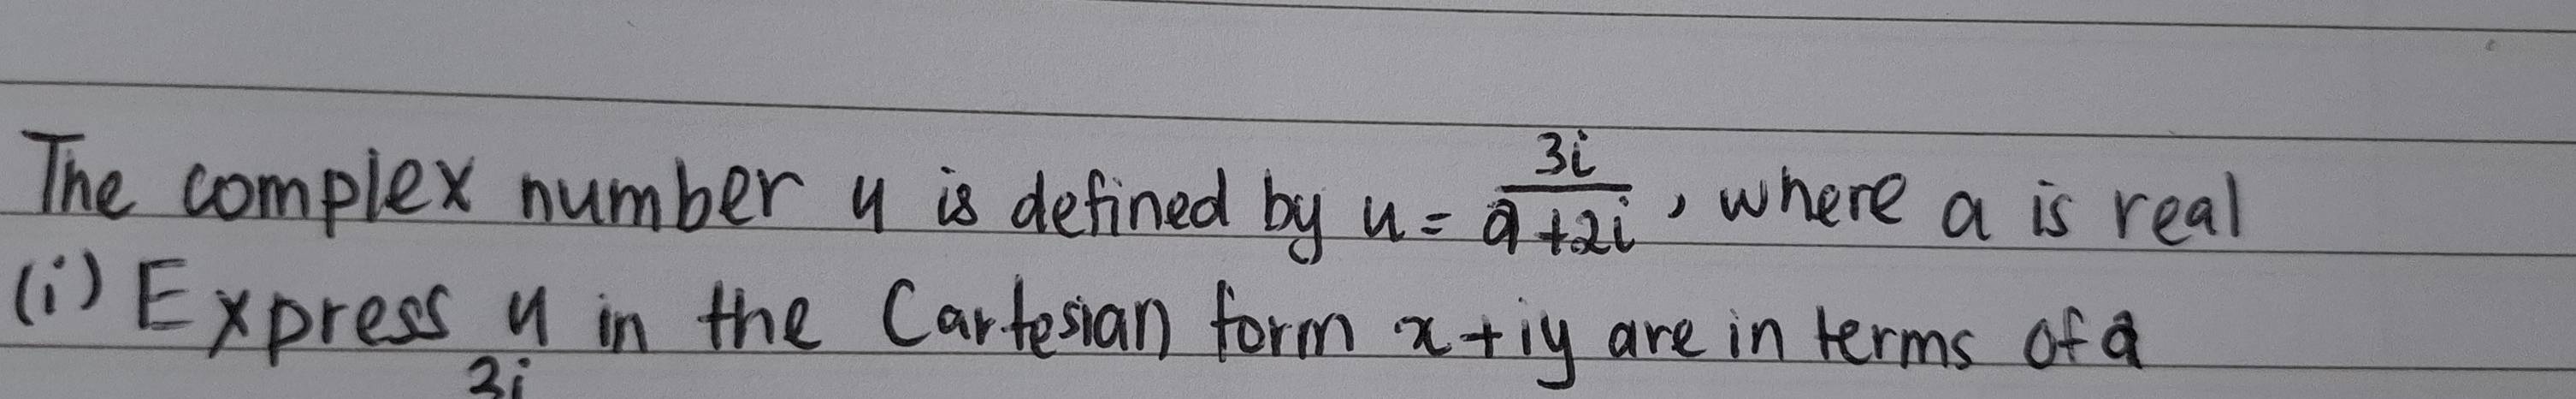 The complex number u is defined by u = 3i/(a+2i), where a is real
(i) Express u in the Cartesian form x+iy are in terms of a
3i